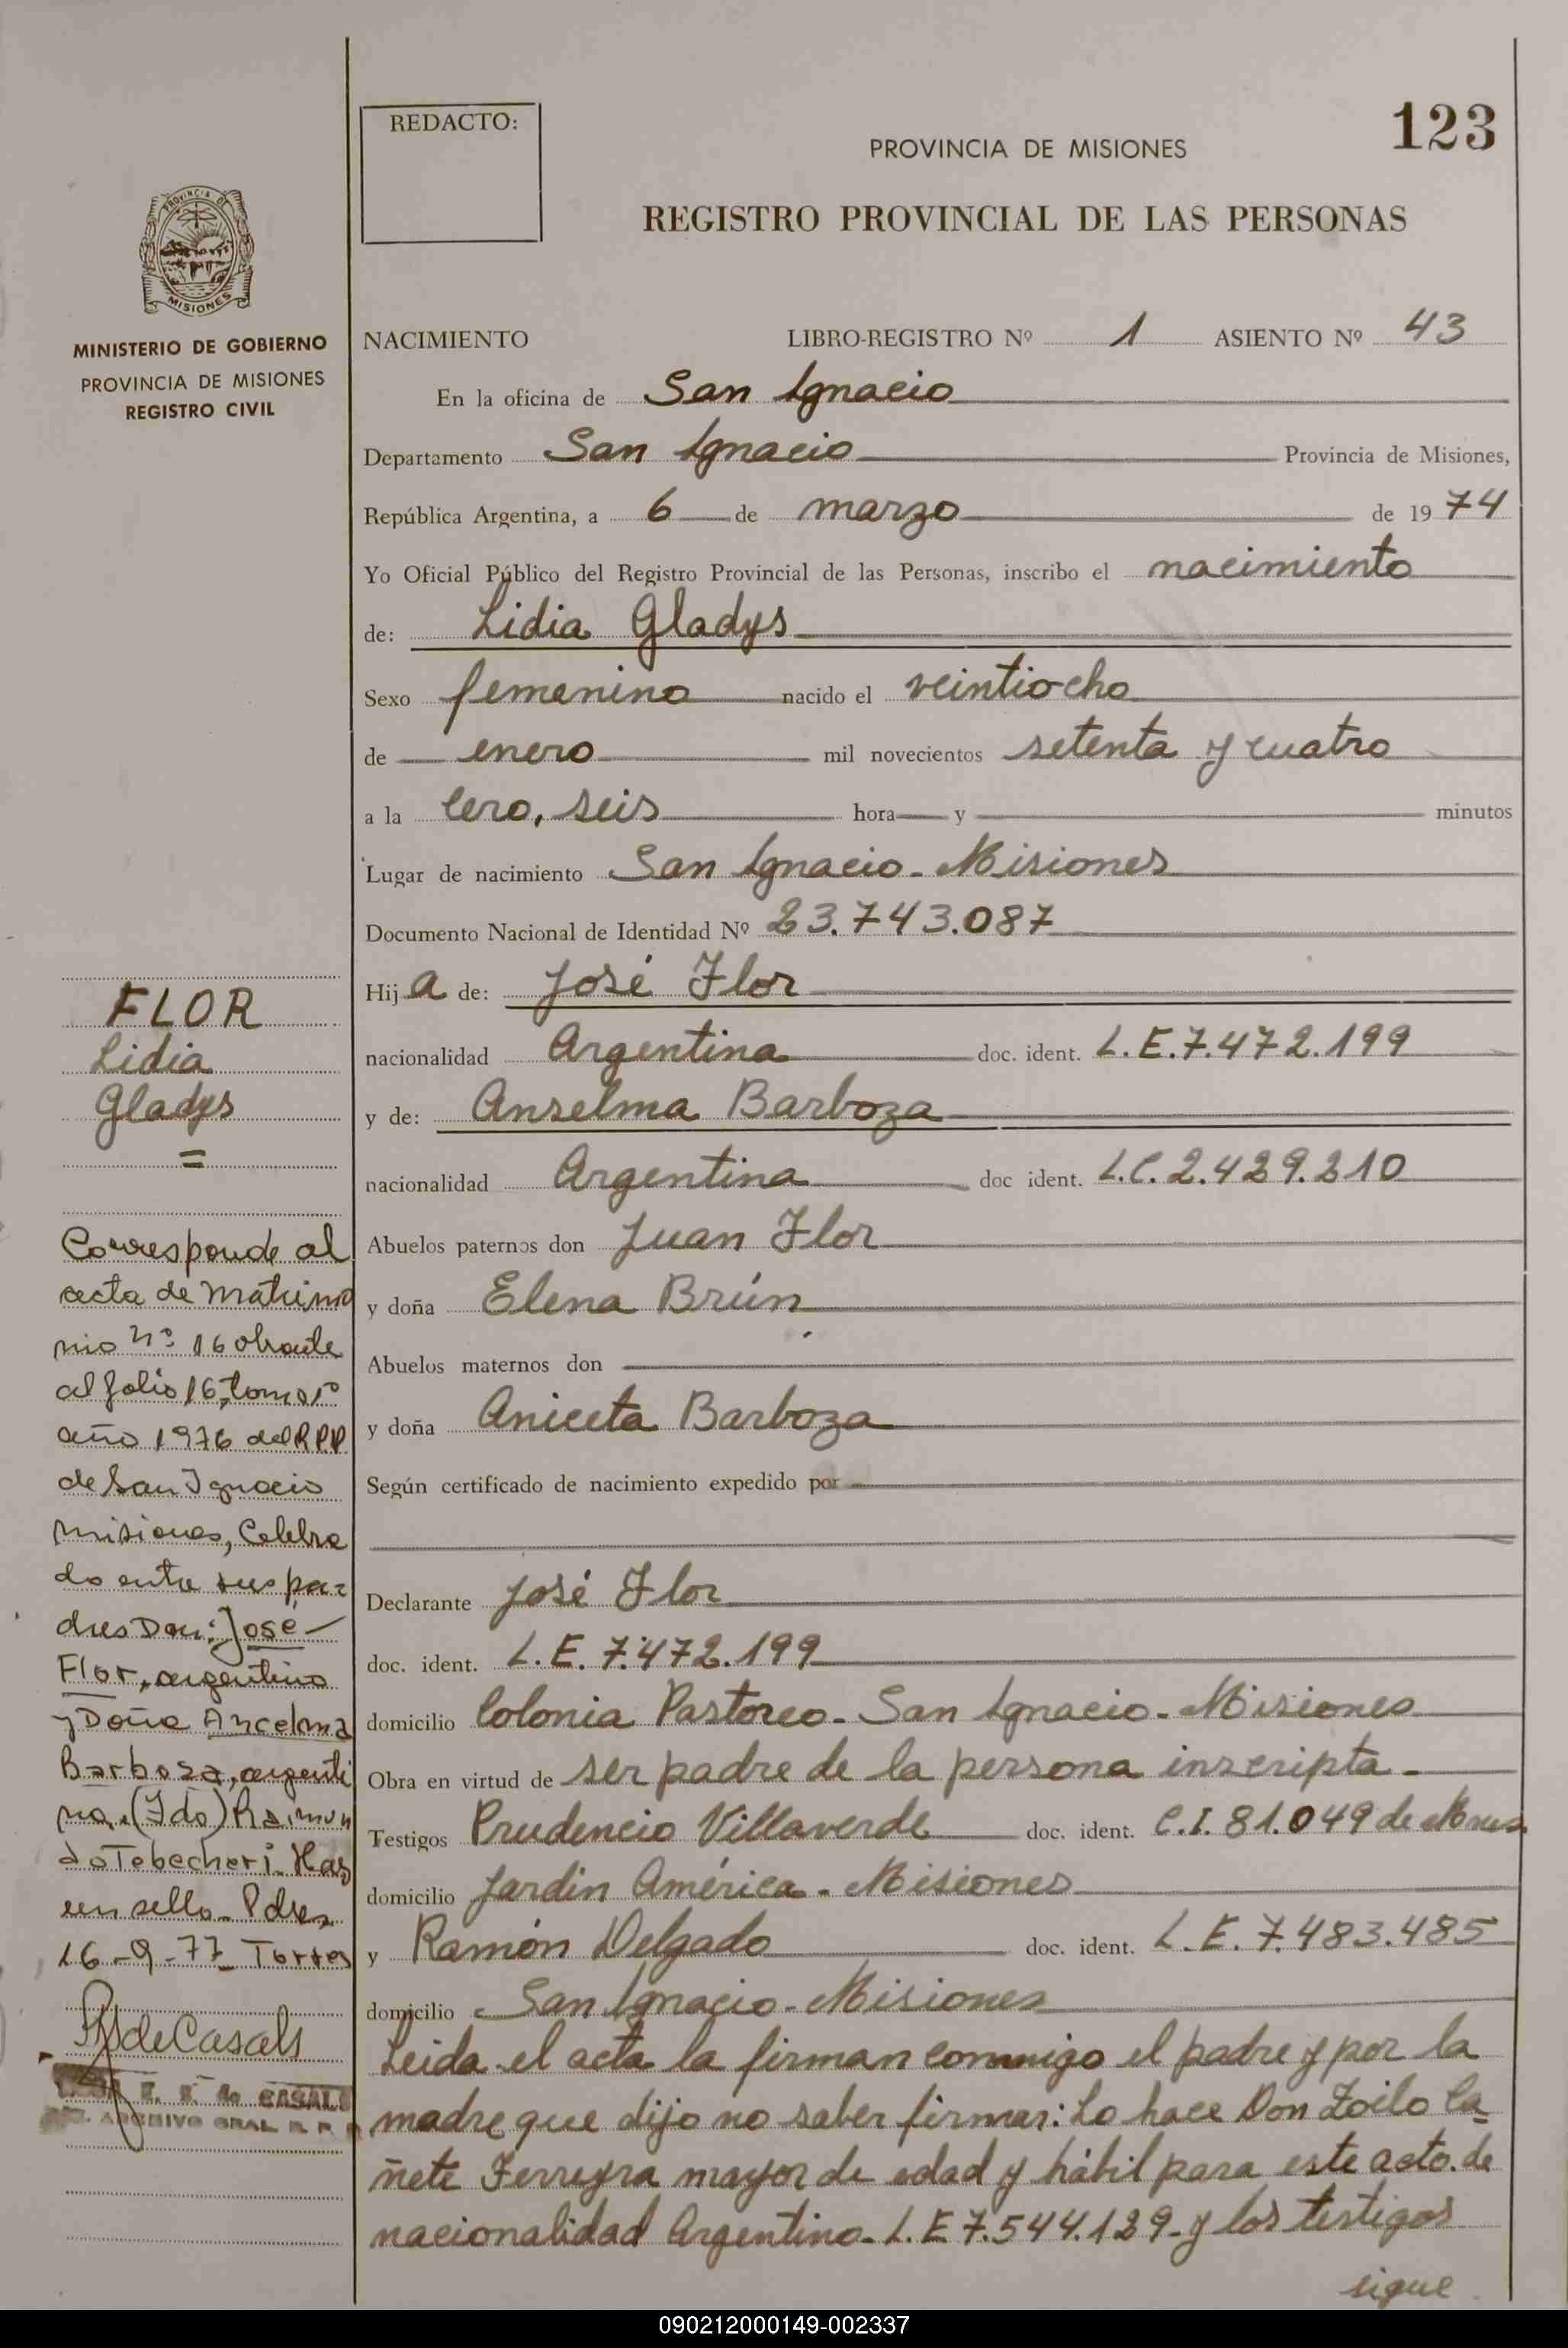 REDACTO:
PROVINCIA DE MISIONES
123
REGISTRO PROVINCIAL DE LAS PERSONAS
PROVINCIA DE
MISIONES
MINISTERIO DE GOBIERNO
PROVINCIA DE MISIONES
REGISTRO CIVIL
NACIMIENTO LIBRO-REGISTRO Nº 1 ASIENTO Nº 43
En la oficina de San Ignacio
Departamento San Ignacio Provincia de Misiones,
República Argentina, a 6 de marzo de 1974
Yo Oficial Público del Registro Provincial de las Personas, inscribo el nacimiento
de: Lidia Gladys
Sexo femenino nacido el veintiocho
de enero mil novecientos setenta y cuatro
a la cero, seis hora y minutos
Lugar de nacimiento San Ignacio - Misiones
Documento Nacional de Identidad Nº 23.743.087
Hija de: José Flor
nacionalidad Argentina doc. ident. L.E.7.472.199
y de: Anselma Barboza
nacionalidad Argentina doc ident. L.C.2.429.210
Abuelos paternos don Juan Flor
y doña Elena Brún
Abuelos maternos don
y doña Aniceta Barboza
Según certificado de nacimiento expedido por
Declarante José Flor
doc. ident. L.E. 7.472.199
domicilio Colonia Pastoreo - San Ignacio - Misiones
Obra en virtud de ser padre de la persona inscripta -
Testigos Prudencio Villaverde doc. ident. C.I. 81.049 de
domicilio Jardín América - Misiones
y Ramón Delgado doc. ident. L.E. 7.483.485
domicilio San Ignacio - Misiones
Leida el acta la firman conmigo el padre y por la
madre que dijo no saber firmar: Lo hace Don Zoilo Ca-
ñete Ferreyra mayor de edad y hábil para este acto. de
nacionalidad Argentino - L.E 7.544.129 - y los testigos
sigue
FLOR
Lidia
Gladys
=
Corresponde al
acta de Matrimo
nio nº 16 obrante
al folio 16, tomo 1º
año 1976 del RPP
de San Ignacio
Misiones, Celebra
do entre sus pa-
dres Don: José
Flor, argentino
y Doña Ancelma
Barboza, argenti
na. (Fdo) Raimun
do Tebecheri. Hay
un sello - Pdas
16-9-77 - Torres
de Casals
de CASALS
ARCHIVO GRAL R. P. P.
090212000149-002337